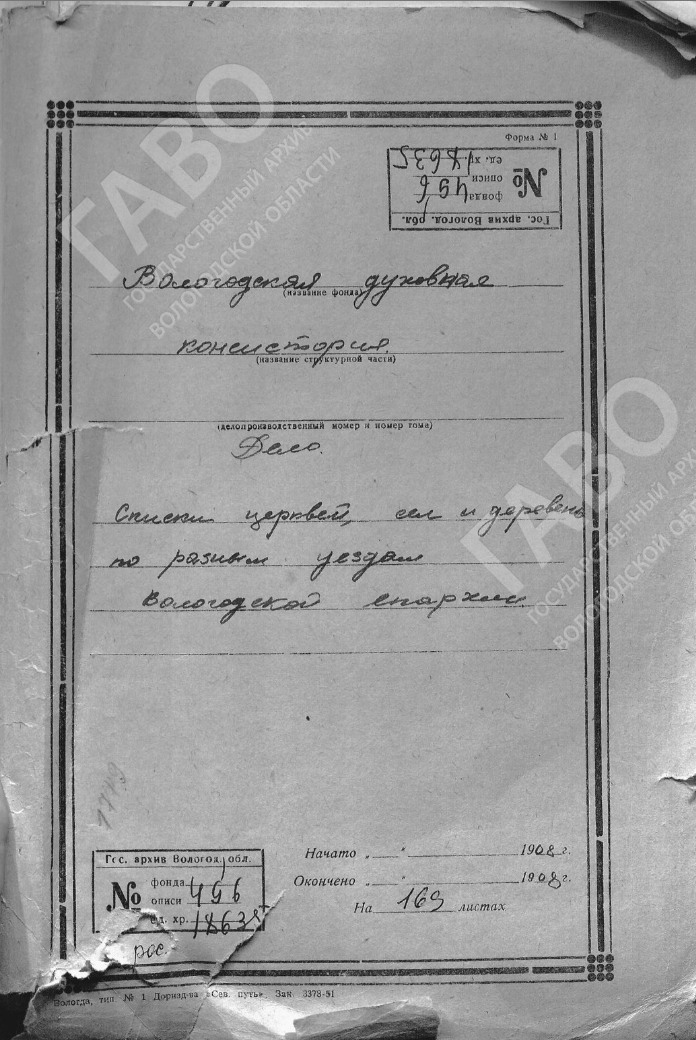 Форма № 1
Гос. архив Вологод. обл.
№
фонда 496
описи 1
ед. хр. 18635
Вологодская духовная
(название фонда)
консистория.
(название структурной части)
(делопроизводственный номер и номер тома)
Дело.
Списки церквей, сел и деревень
по разным уездам
Вологодской епархии.
1749
Начато „ “ 1908 г.
Окончено „ “ 1908 г.
На 169 листах
Гос. архив Вологод. обл.
№
фонда 496
описи 1
ед. хр. 18635
рос.
Вологда, тип. № 1 Дориздата «Сев. путь». Зак. 3378-51
ГАВО
ГОСУДАРСТВЕННЫЙ АРХИВ
ВОЛОГОДСКОЙ ОБЛАСТИ
ГАВО
ГОСУДАРСТВЕННЫЙ АРХИ
ВОЛОГОДСКОЙ ОБЛАС